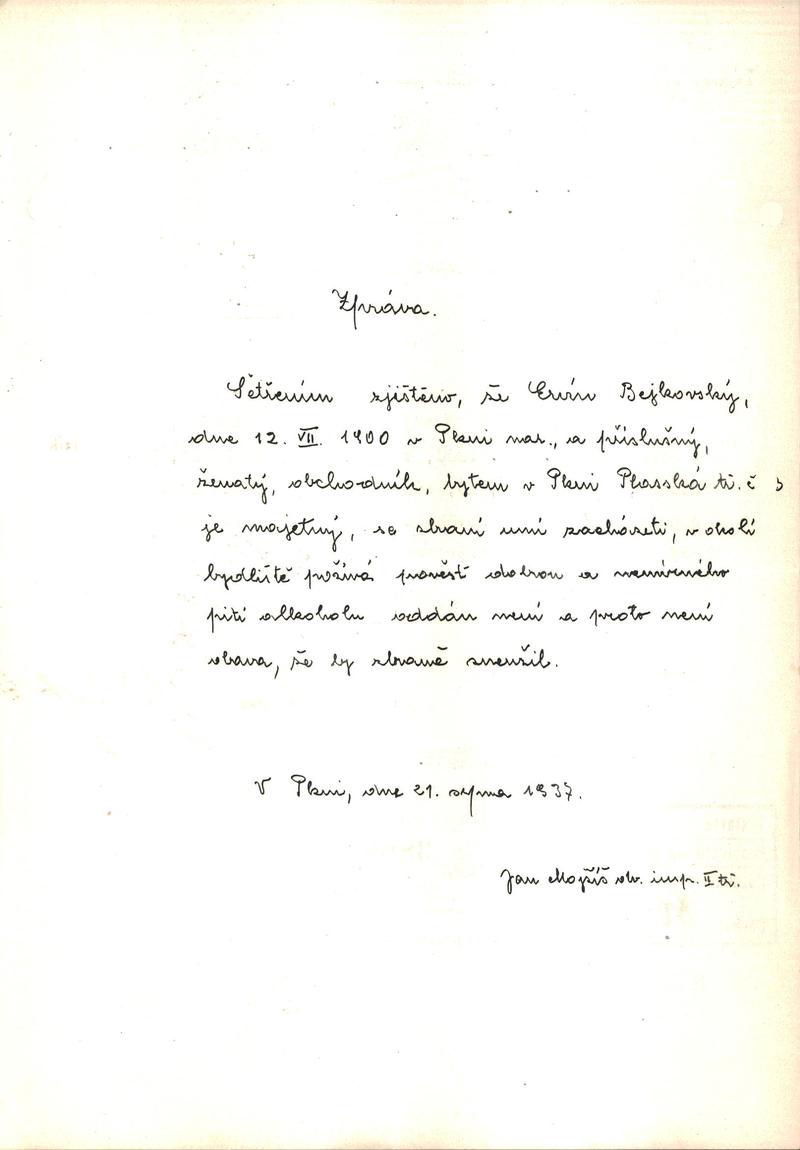 Zpráva.
Šetřením zjištěno, že Ervín Bejkovský,
dne 12. VII. 1900 v Plzni nar., a příslušný,
ženatý, obchodník, bytem v Plzni Plasská tř. č 3
je majetný, se zbraní umí zacházeti, v okolí
bydliště požívá pověsti dobrou a nemírného
pití alkoholu oddán není a proto není
obava, že by zbraně zneužil.
V Plzni, dne 21. srpna 1937.
Jan Mojžíš ob. insp. II tř.